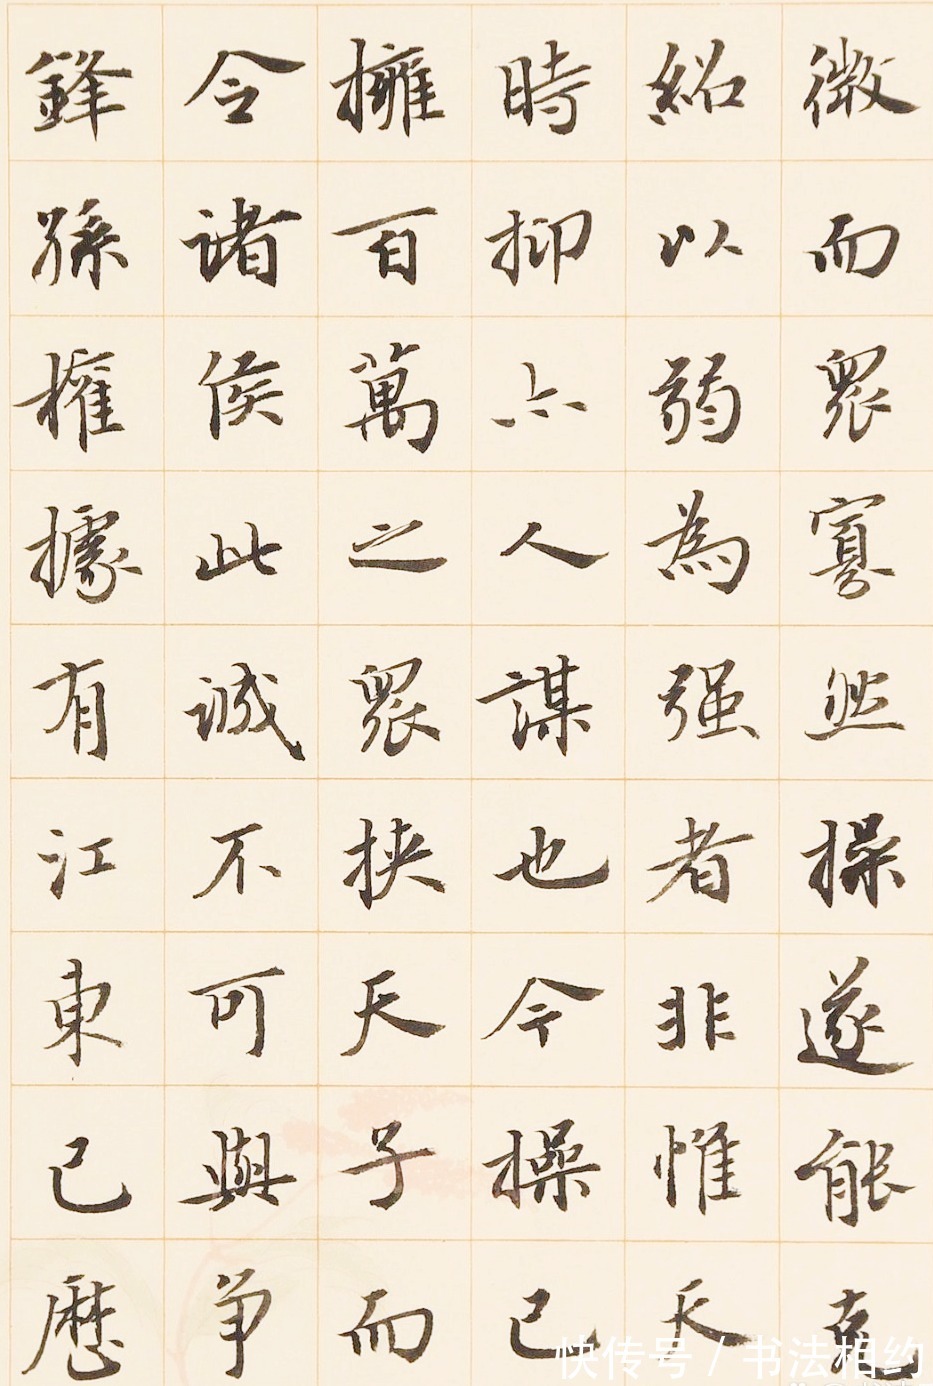 微而眾寡然操遂能克
紹以弱為强者非惟天
時抑亦人謀也今操已
擁百萬之眾挟天子而
令諸侯此誠不可與争
鋒孫權據有江東已歷
快传号 / 书法相约